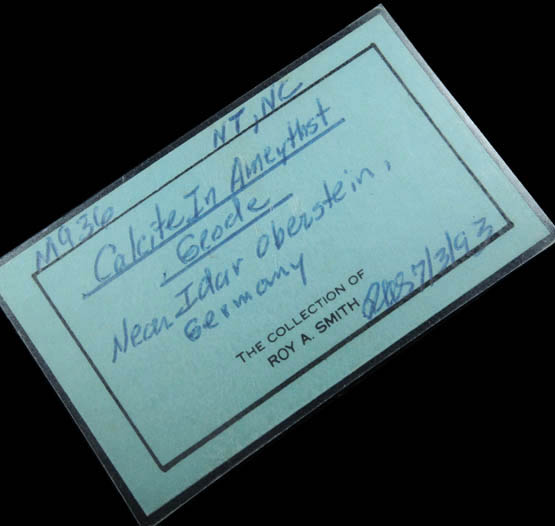 NT, NC
M936
Calcite In Ameythst
Geode
Near Idar Oberstein,
Germany
THE COLLECTION OF
ROY A. SMITH
RAS 7/3/93